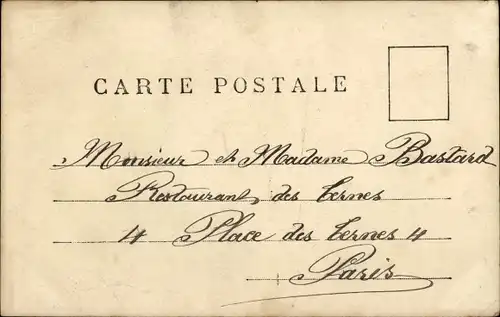 CARTE POSTALE
Monsieur et Madame Bastard
Restaurant des Ternes
4 Place des Ternes 4
Paris